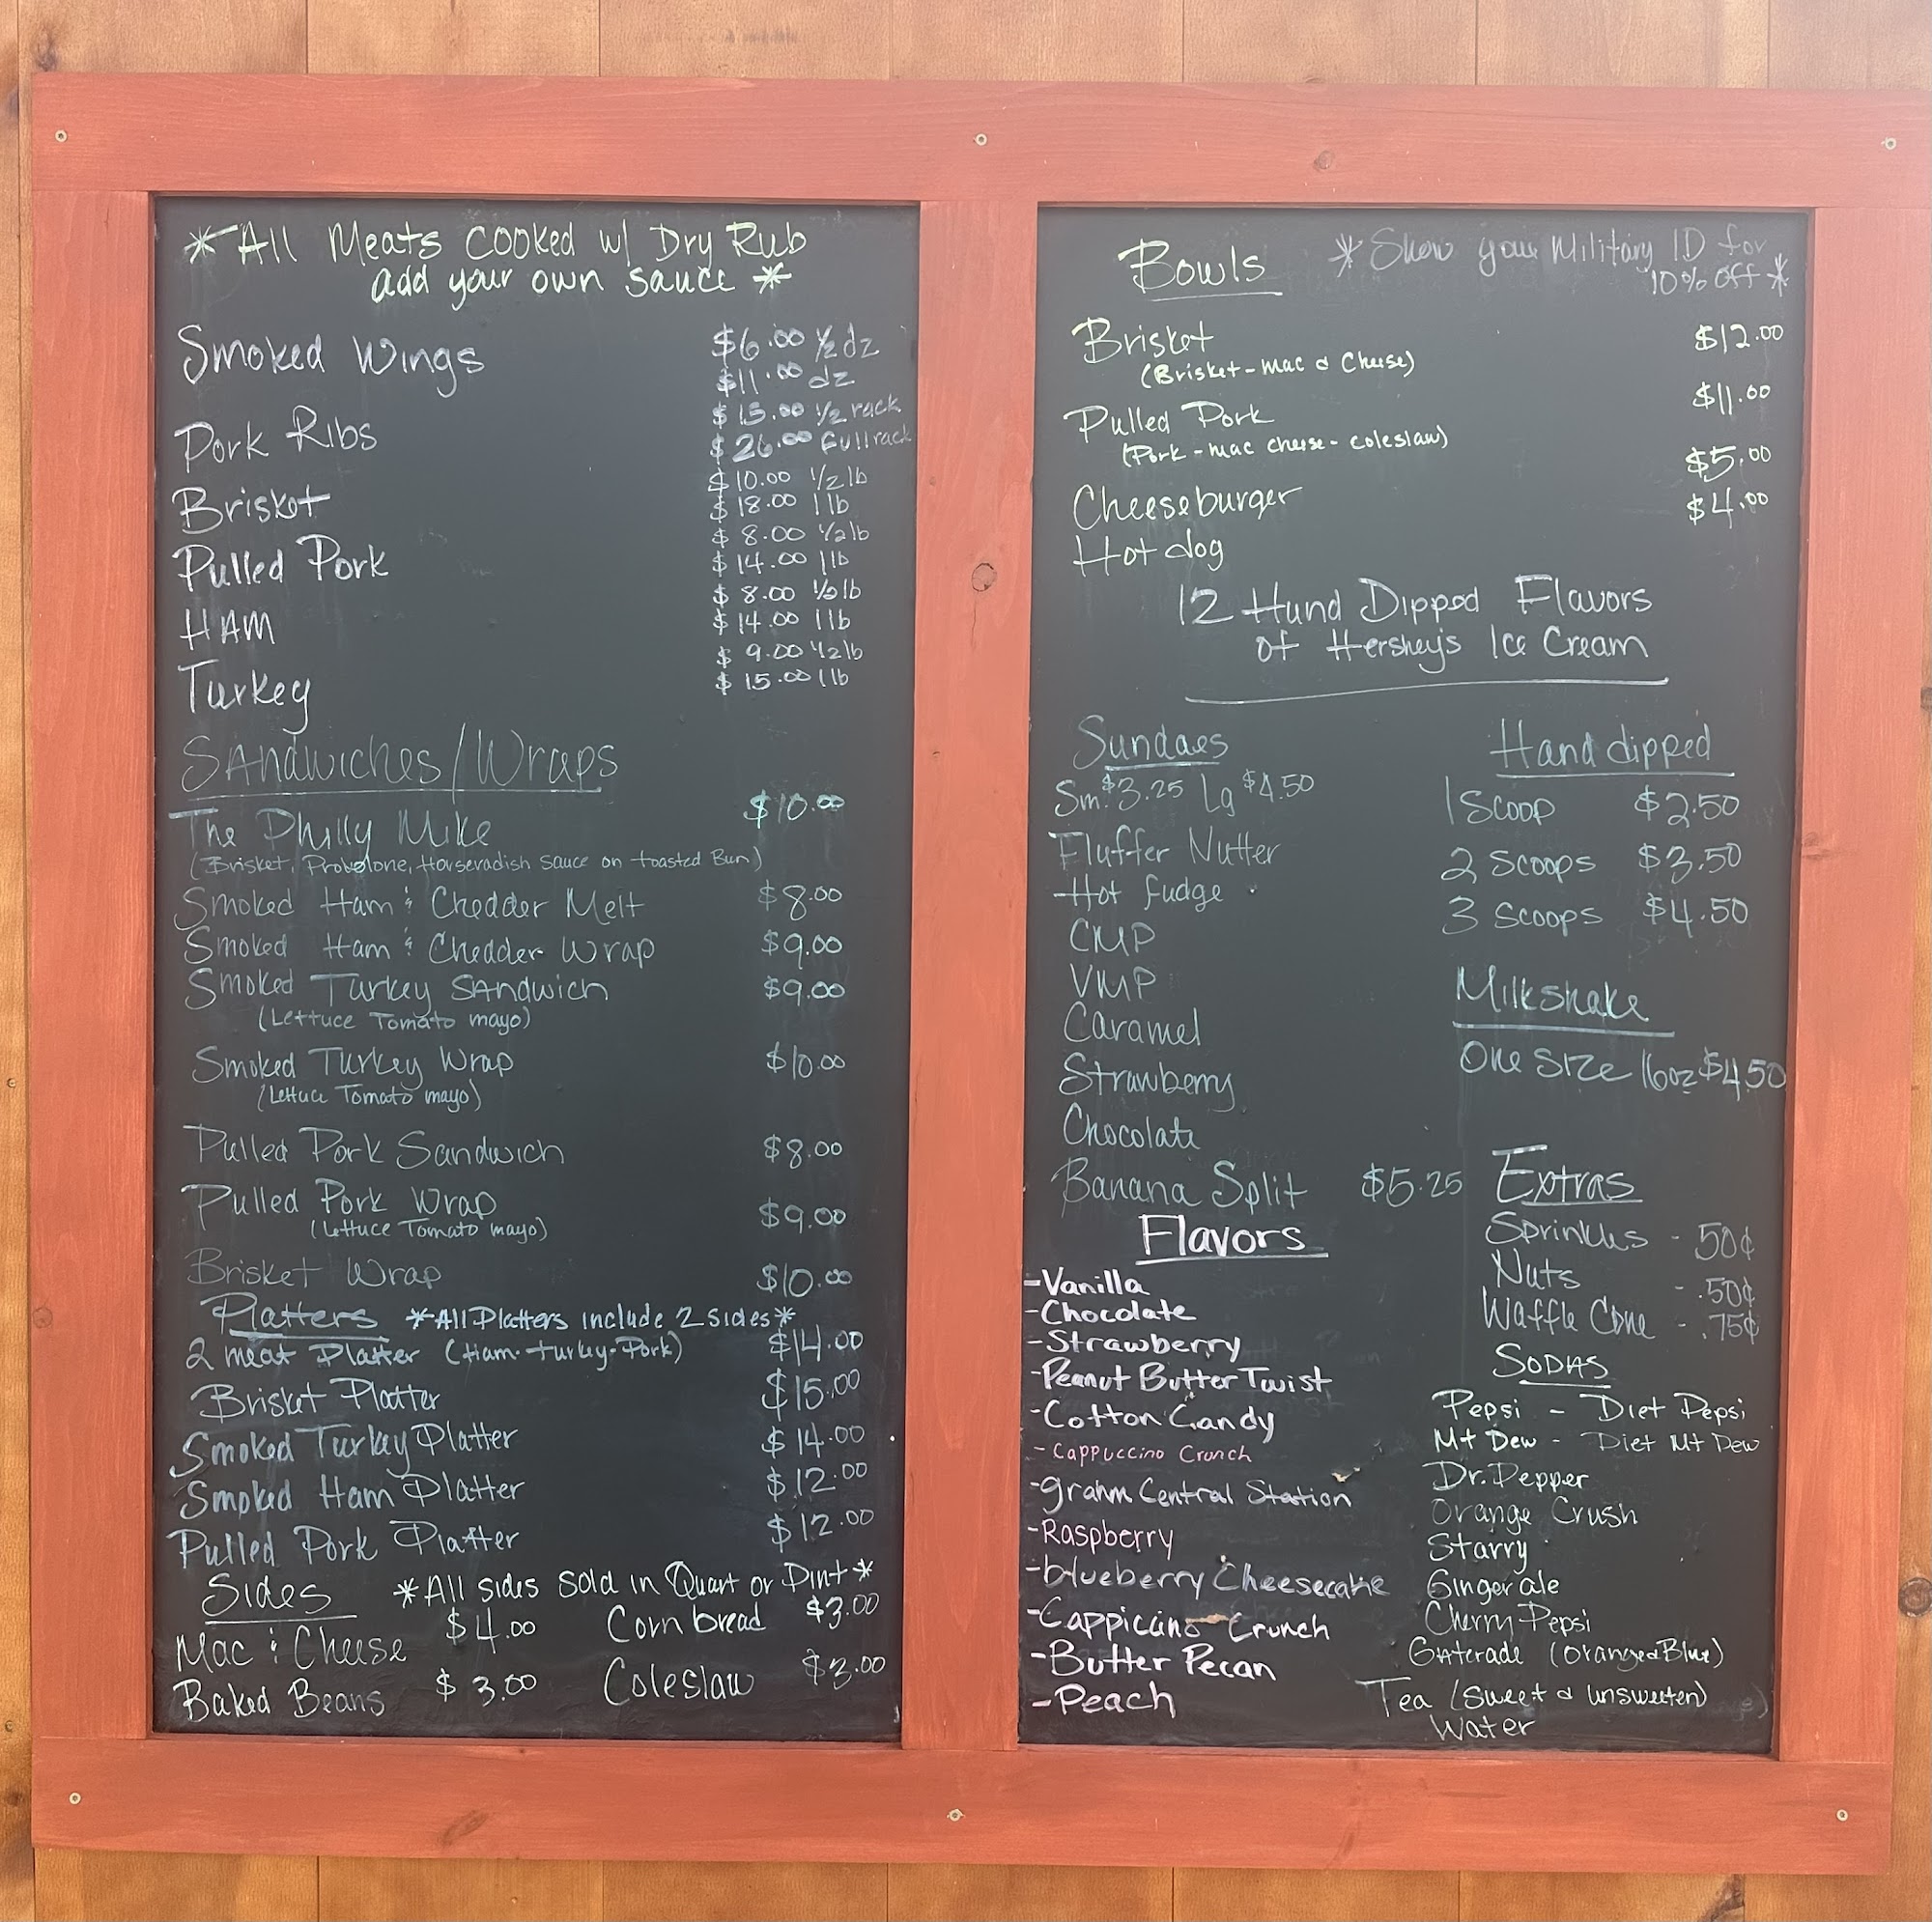 *All Meats Cooked w/ Dry Rub
add your own sauce *
Smoked Wings $6.00 ½ dz
$11.00 dz
Pork Ribs $15.00 ½ rack
$26.00 full rack
Brisket $10.00 ½ lb
$18.00 1 lb
Pulled Pork $8.00 ½ lb
$14.00 1 lb
HAM $8.00 ½ lb
$14.00 1 lb
Turkey $9.00 ½ lb
$15.00 1 lb
Sandwiches/Wraps
The Philly Mike $10.00
(Brisket, Probolone, Horseradish sauce on toasted Bun)
Smoked Ham & Chedder Melt $8.00
Smoked Ham & Chedder Wrap $9.00
Smoked Turkey Sandwich $9.00
(Lettuce Tomato mayo)
Smoked Turkey Wrap $10.00
(Lettuce Tomato mayo)
Pulled Pork Sandwich $8.00
Pulled Pork Wrap $9.00
(Lettuce Tomato mayo)
Brisket Wrap $10.00
Platters *All Platters include 2 sides*
2 meat Platter (Ham-turkey-Pork) $14.00
Brisket Platter $15.00
Smoked Turkey Platter $14.00
Smoked Ham Platter $12.00
Pulled Pork Platter $12.00
Sides *All sides sold in Quart or Pint*
Mac & Cheese $4.00 Corn bread $3.00
Baked Beans $3.00 Coleslaw $3.00
Bowls *Show your Military ID for
10% off *
Brisket $12.00
(Brisket-mac & Cheese)
Pulled Pork $11.00
(Pork-mac cheese-coleslaw)
Cheeseburger $5.00
Hot dog $4.00
12 Hand Dipped Flavors
of Hershey's Ice Cream
Sundaes
Sm. $3.25 Lg $4.50
Fluffer Nutter
Hot fudge
CMP
VMP
Caramel
Strawberry
Chocolate
Banana Split $5.25
Hand dipped
1 Scoop $2.50
2 Scoops $3.50
3 Scoops $4.50
Milkshake
One SIZe 16oz $4.50
Extras
Sprinkles - 50¢
Nuts - .50¢
Waffle Cone - .75¢
Flavors
-Vanilla
-Chocolate
-Strawberry
-Peanut Butter Twist
-Cotton Candy
-Cappuccino Crunch
-grahm Central Station
-Raspberry
-blueberry Cheesecake
-Cappiccino Crunch
-Butter Pecan
-Peach
Sodas
Pepsi - Diet Pepsi
Mt Dew - Diet Mt Dew
Dr. Pepper
Orange Crush
Starry
Ginger ale
Cherry Pepsi
Gaterade (orange & Blue)
Tea (Sweet & unsweeten)
Water